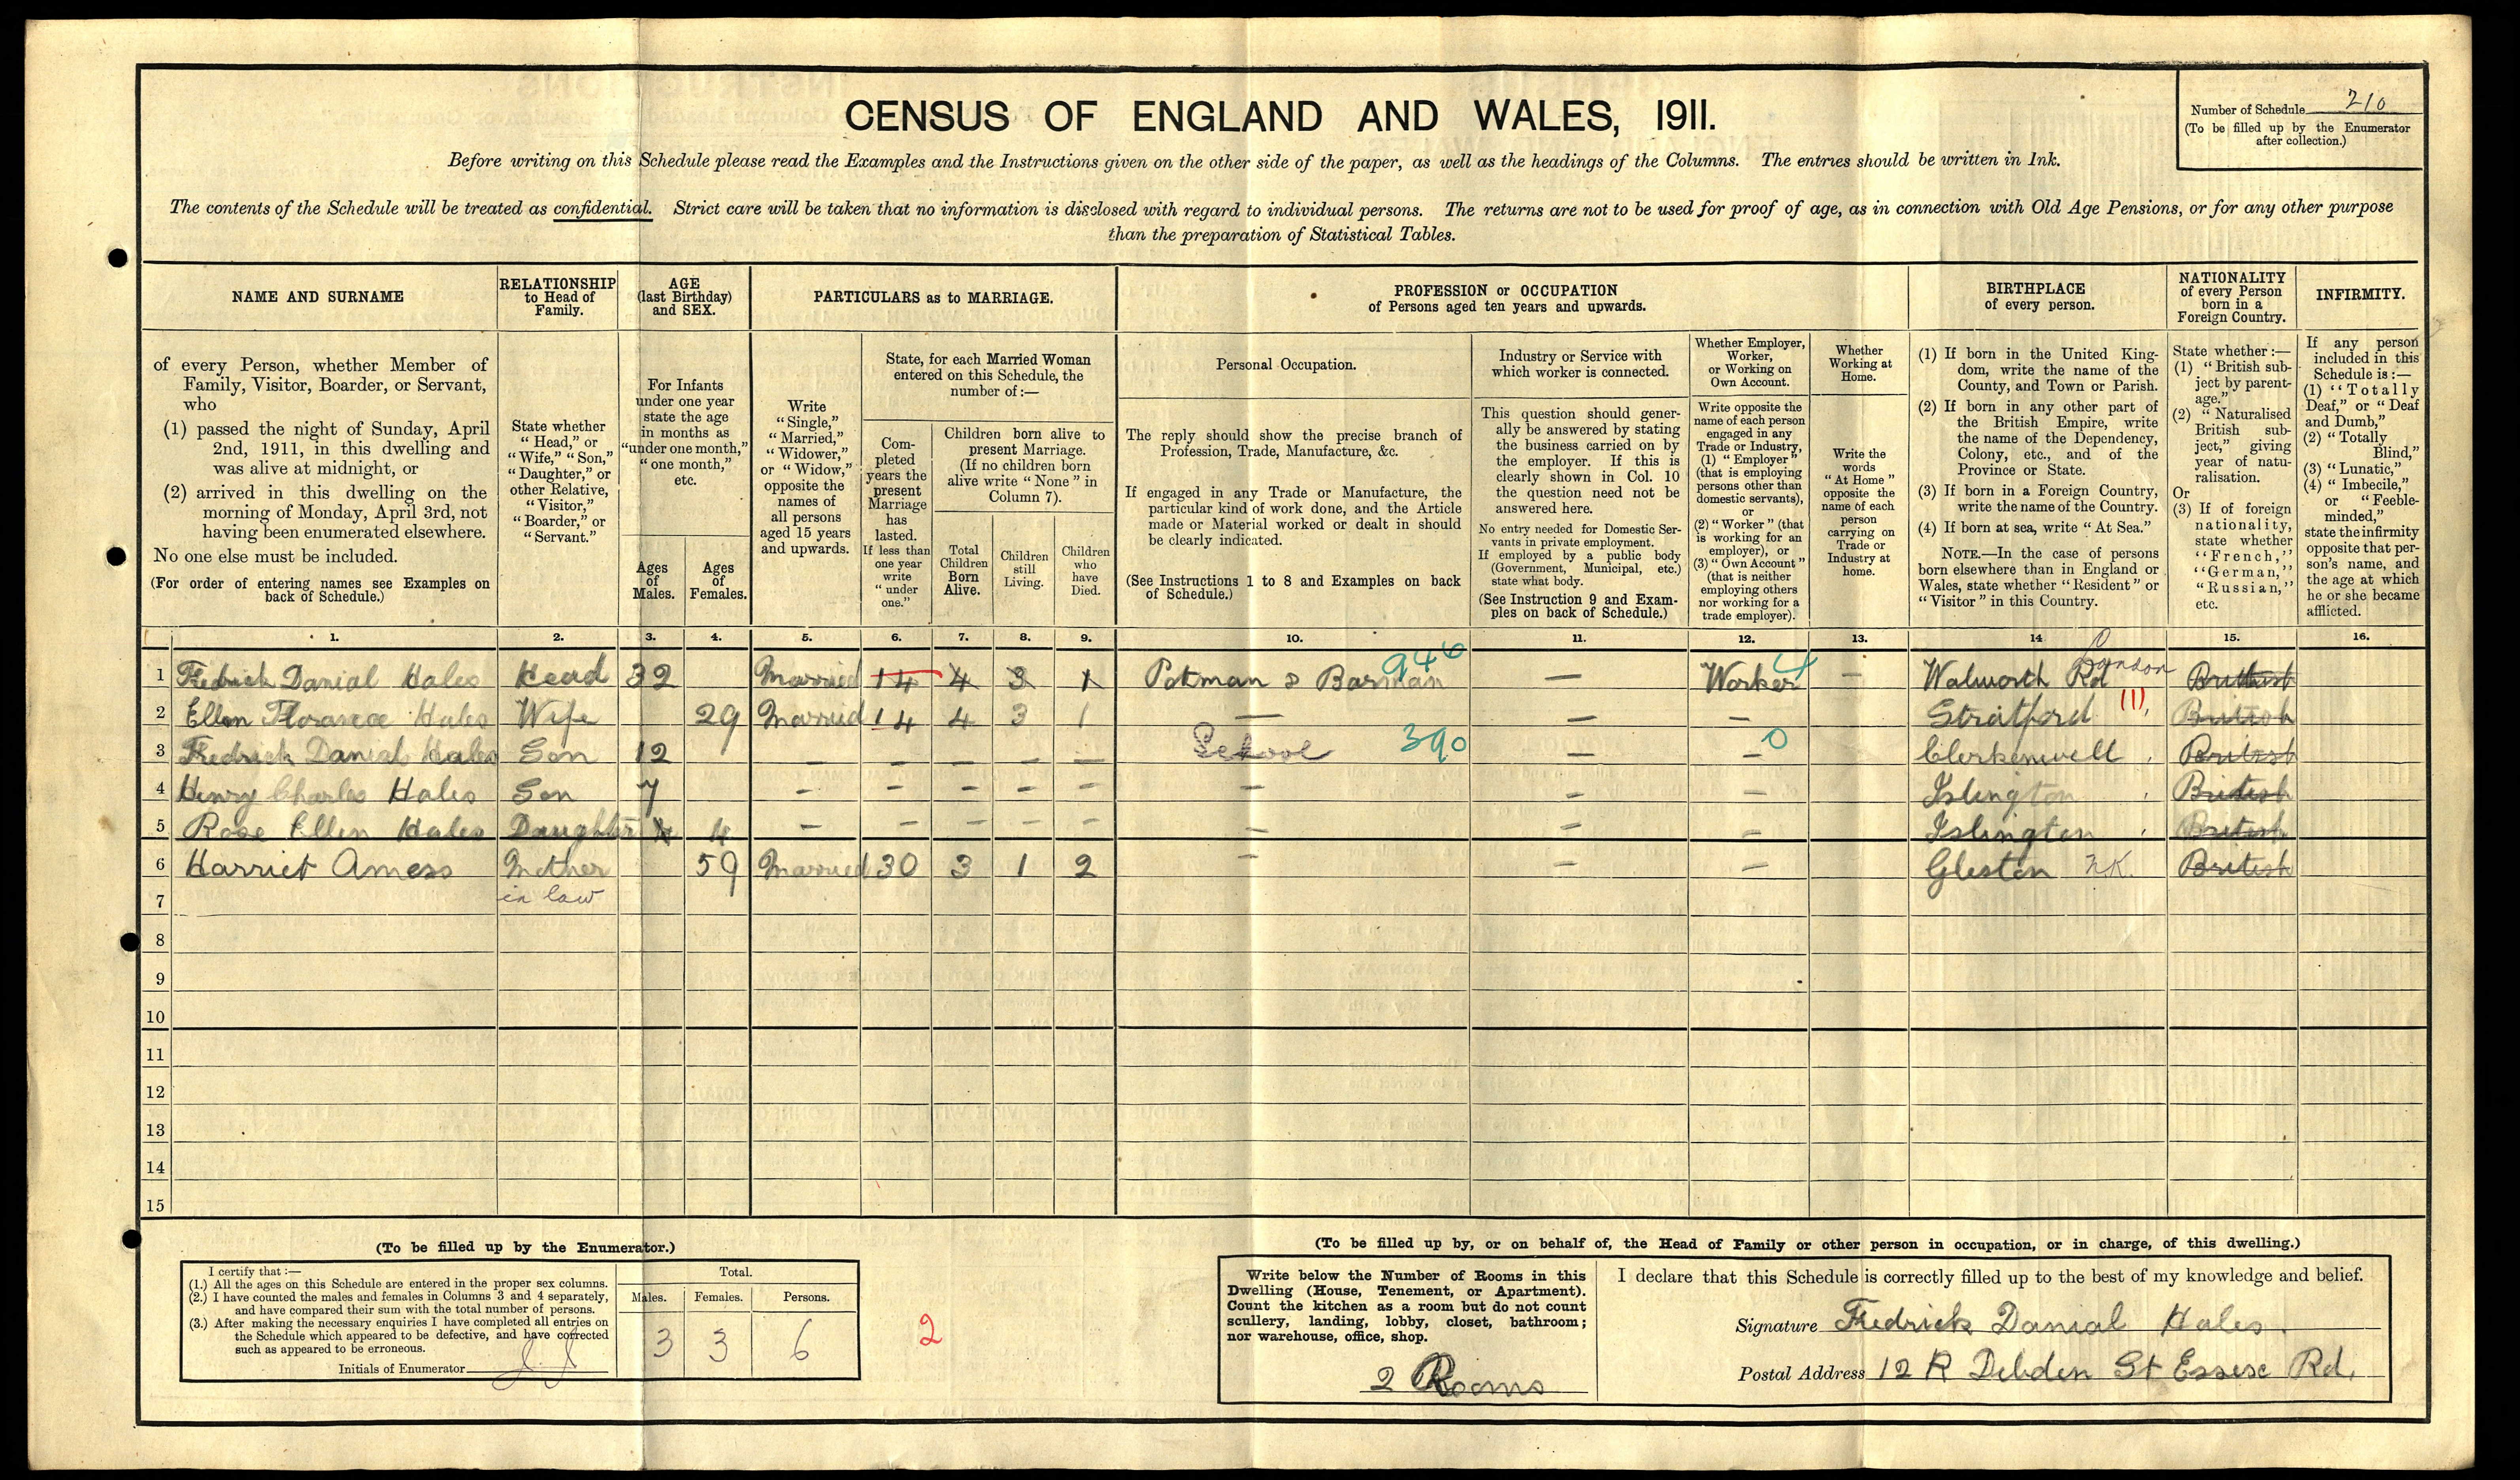 CENSUS OF ENGLAND AND WALES, 1911.
Number of Schedule 210
(To be filled up by the Enumerator
after collection.)
Before writing on this Schedule please read the Examples and the Instructions given on the other side of the paper, as well as the headings of the Columns. The entries should be written in Ink.
The contents of the Schedule will be treated as confidential. Strict care will be taken that no information is disclosed with regard to individual persons. The returns are not to be used for proof of age, as in connection with Old Age Pensions, or for any other purpose
than the preparation of Statistical Tables.
NAME AND SURNAME
of every Person, whether Member of
Family, Visitor, Boarder, or Servant,
who
(1) passed the night of Sunday, April
2nd, 1911, in this dwelling and
was alive at midnight, or
(2) arrived in this dwelling on the
morning of Monday, April 3rd, not
having been enumerated elsewhere.
No one else must be included.
(For order of entering names see Examples on
back of Schedule.)
RELATIONSHIP
to Head of
Family.
State whether
"Head," or
"Wife," "Son,"
"Daughter," or
other Relative,
"Visitor,"
"Boarder," or
"Servant."
AGE
(last Birthday)
and SEX.
For Infants
under one year
state the age
in months as
"under one month,"
"one month,"
etc.
Ages
of
Males.
Ages
of
Females.
PARTICULARS as to MARRIAGE.
Write
"Single,"
"Married,"
"Widower,"
or "Widow,"
opposite the
names of
all persons
aged 15 years
and upwards.
State, for each Married Woman
entered on this Schedule, the
number of:—
Com-
pleted
years the
present
Marriage
has
lasted.
If less than
one year
write
"under
one."
Children born alive to
present Marriage.
(If no children born
alive write "None" in
Column 7).
Total
Children
Born
Alive.
Children
still
Living.
Children
who
have
Died.
PROFESSION or OCCUPATION
of Persons aged ten years and upwards.
Personal Occupation.
The reply should show the precise branch of
Profession, Trade, Manufacture, &c.
If engaged in any Trade or Manufacture, the
particular kind of work done, and the Article
made or Material worked or dealt in should
be clearly indicated.
(See Instructions 1 to 8 and Examples on back
of Schedule.)
Industry or Service with
which worker is connected.
This question should gener-
ally be answered by stating
the business carried on by
the employer. If this is
clearly shown in Col. 10
the question need not be
answered here.
No entry needed for Domestic Ser-
vants in private employment.
If employed by a public body
(Government, Municipal, etc.)
state what body.
(See Instruction 9 and Exam-
ples on back of Schedule.)
Whether Employer,
Worker,
or Working on
Own Account.
Write opposite the
name of each person
engaged in any
Trade or Industry,
(1) "Employer"
(that is employing
persons other than
domestic servants),
or
(2) "Worker" (that
is working for an
employer), or
(3) "Own Account"
(that is neither
employing others
nor working for a
trade employer).
Whether
Working at
Home.
Write the
words
"At Home"
opposite the
name of each
person
carrying on
Trade or
Industry at
home.
BIRTHPLACE
of every person.
(1) If born in the United King-
dom, write the name of the
County, and Town or Parish.
(2) If born in any other part of
the British Empire, write
the name of the Dependency,
Colony, etc., and of the
Province or State.
(3) If born in a Foreign Country,
write the name of the Country.
(4) If born at sea, write "At Sea."
NOTE.—In the case of persons
born elsewhere than in England or
Wales, state whether "Resident" or
"Visitor" in this Country.
NATIONALITY
of every Person
born in a
Foreign Country.
State whether:—
(1) "British sub-
ject by parent-
age."
(2) "Naturalised
British sub-
ject," giving
year of natu-
ralisation.
Or
(3) If of foreign
nationality,
state whether
"French,"
"German,"
"Russian,"
etc.
INFIRMITY.
If any person
included in this
Schedule is:—
(1) "Totally
Deaf," or "Deaf
and Dumb,"
(2) "Totally
Blind,"
(3) "Lunatic,"
(4) "Imbecile,"
or "Feeble-
minded,"
state the infirmity
opposite that per-
son's name, and
the age at which
he or she became
afflicted.
1. 2. 3. 4. 5. 6. 7. 8. 9. 10. 11. 12. 13. 14 15. 16.
1 Fredrick Danial Hales Head 32 Married 14 4 3 1 Potman & Barman 946 — Worker 4 — Walworth Rd London British
2 Ellen Florance Hales Wife 29 Married 14 4 3 1 — — — Stratford (1) British
3 Fredrick Danial Hales Son 12 — — — — — School 390 — — 0 Clerkenwell British
4 Henry Charles Hales Son 7 — — — — — — — — Islington British
5 Rose Ellen Hales Daughter 4 4 — — — — — — — — Islington British
6 Harriet Amess Mother 59 Married 30 3 1 2 — — — Gleston NK. British
7 in law
8
9
10
11
12
13
14
15
(To be filled up by the Enumerator.)
I certify that:—
(1.) All the ages on this Schedule are entered in the proper sex columns.
(2.) I have counted the males and females in Columns 3 and 4 separately,
and have compared their sum with the total number of persons.
(3.) After making the necessary enquiries I have completed all entries on
the Schedule which appeared to be defective, and have corrected
such as appeared to be erroneous.
Initials of Enumerator J. J
Total.
Males. Females. Persons.
3 3 6
2
(To be filled up by, or on behalf of, the Head of Family or other person in occupation, or in charge, of this dwelling.)
Write below the Number of Rooms in this
Dwelling (House, Tenement, or Apartment).
Count the kitchen as a room but do not count
scullery, landing, lobby, closet, bathroom;
nor warehouse, office, shop.
2 Rooms
I declare that this Schedule is correctly filled up to the best of my knowledge and belief.
Signature Fredrick Danial Hales.
Postal Address 12 R Debden St Essex Rd.